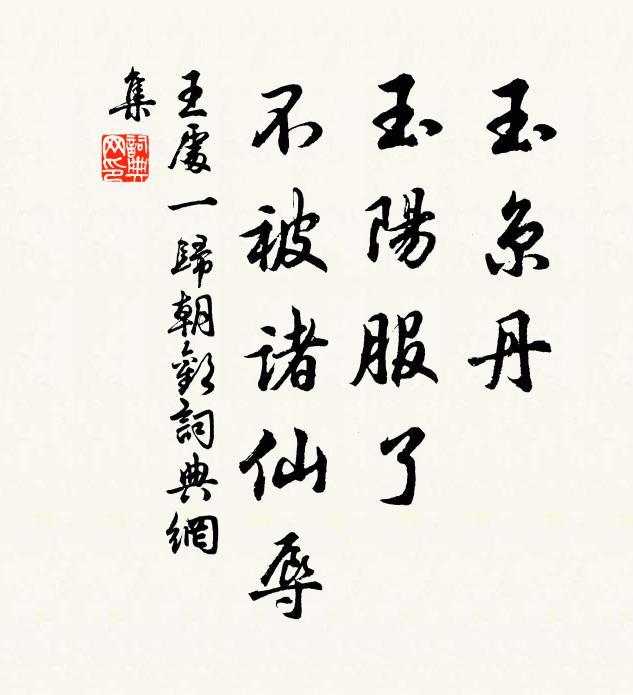 玉京丹
玉陽服了
不被諸仙辱
王處一歸朝歡詞典網
集
詞典网印